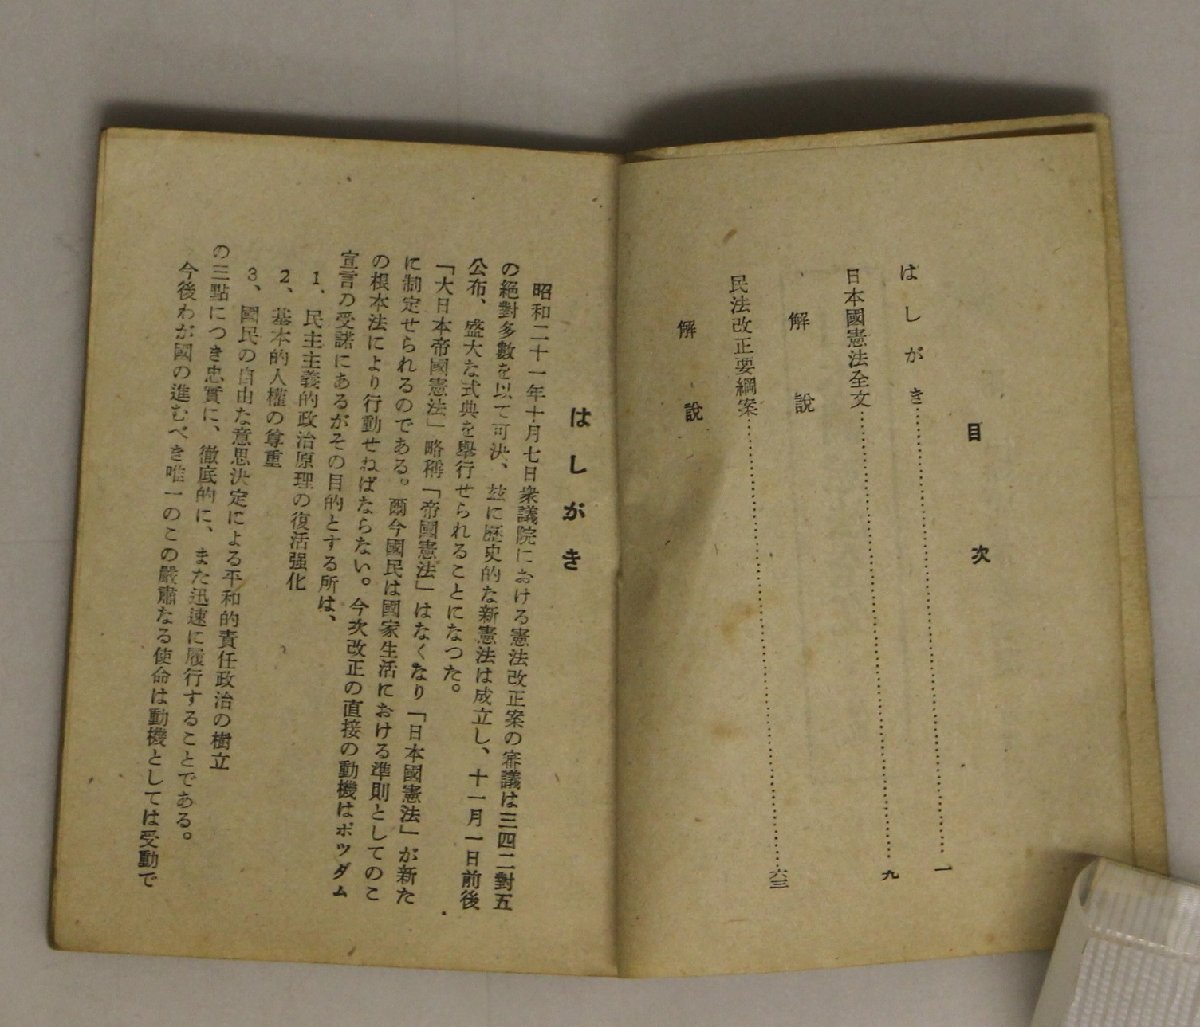 目次
はしがき……………………一
日本國憲法全文……………………九
解說
民法改正要綱案……………………六三
解說
はしがき
昭和二十一年十月七日衆議院における憲法改正案の審議は三四二對五
の絕對多數を以て可決、玆に歷史的な新憲法は成立し、十一月一日前後
公布、盛大な式典を擧行せられることになつた。
「大日本帝國憲法」略稱「帝國憲法」はなくなり「日本國憲法」が新た
に制定せられるのである。爾今國民は國家生活における準則としてのこ
の根本法により行動せねばならない。今次改正の直接の動機はポツダム
宣言の受諾にあるがその目的とする所は、
1、民主主義的政治原理の復活强化
2、基本的人權の尊重
3、國民の自由な意思決定による平和的責任政治の樹立
の三點につき忠實に、徹底的に、また迅速に履行することである。
今後わが國の進むべき唯一のこの嚴肅なる使命は動機としては受動で